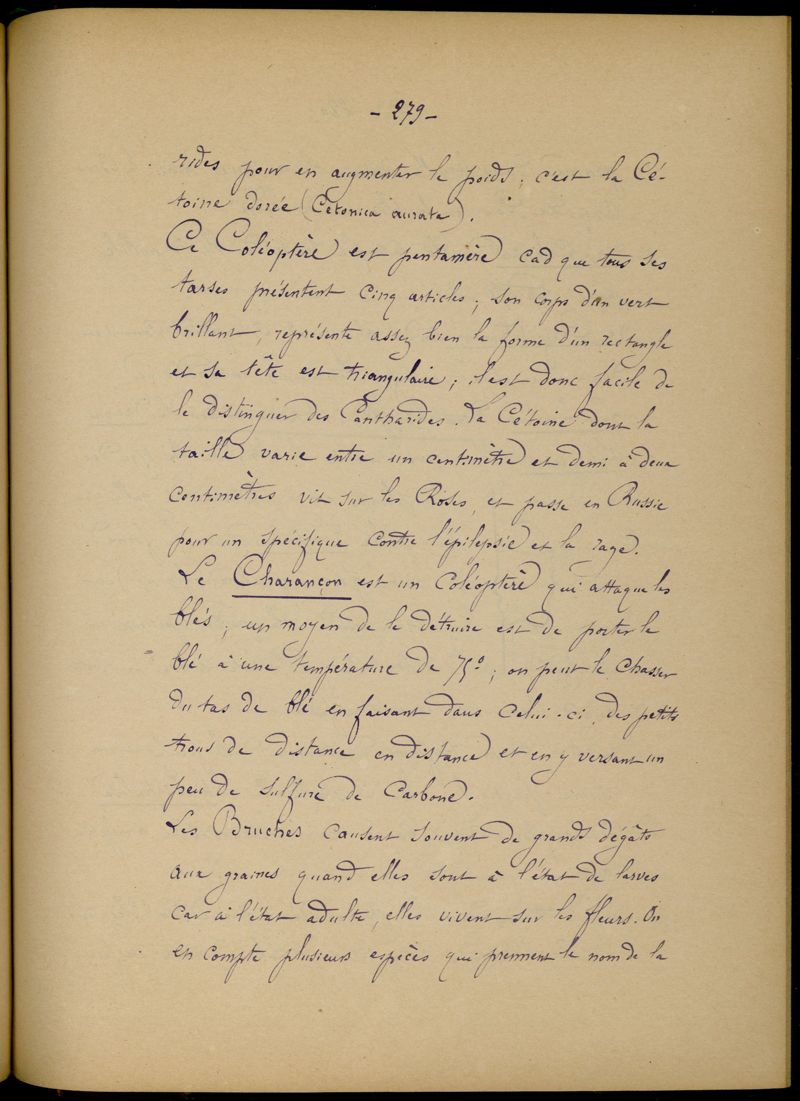 - 279 -
rides pour en augmenter le poids ; c'est la Cé-
toine dorée (Cetonica aurata).
Ce Coléoptère est pentamère cad que tous ses
tarses présentent cinq articles ; son corps d'un vert
brillant, représente assez bien la forme d'un rectangle
et sa tête est triangulaire ; il est donc facile de
le distinguer des Cantharides. La Cétoine dont la
taille varie entre un centimètre et demi à deux
centimètres vit sur les Roses, et passe en Russie
pour un spécifique contre l'épilepsie et la rage.
Le Charançon est un coléoptère qui attaque les
blés ; un moyen de le détruire est de porter le
blé à une température de 75° ; on peut le chasser
du tas de blé en faisant dans celui-ci, des petits
trous de distance en distance et en y versant un
peu de sulfure de Carbone.
Les Bruches causent souvent de grands dégâts
aux graines quand elles sont à l'état de larves
car à l'état adulte, elles vivent sur les fleurs. On
en compte plusieurs espèces qui prennent le nom de la